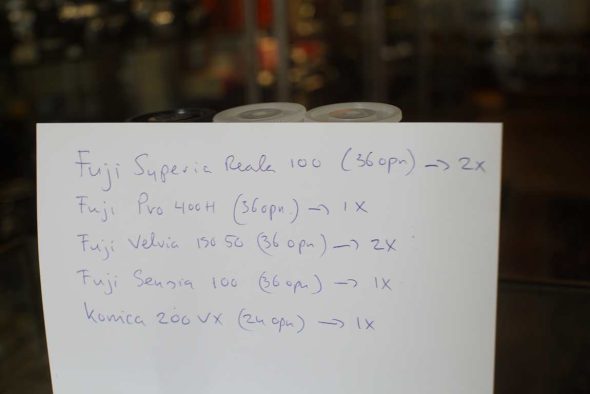 Fuji Superia Reala 100 (36opn) → 2x
Fuji Pro 400H (36opn.) → 1x
Fuji Velvia ISO 50 (36 opn) → 2x
Fuji Sensia 100 (36opn) → 1x
Konica 200 VX (24 opn) → 1x